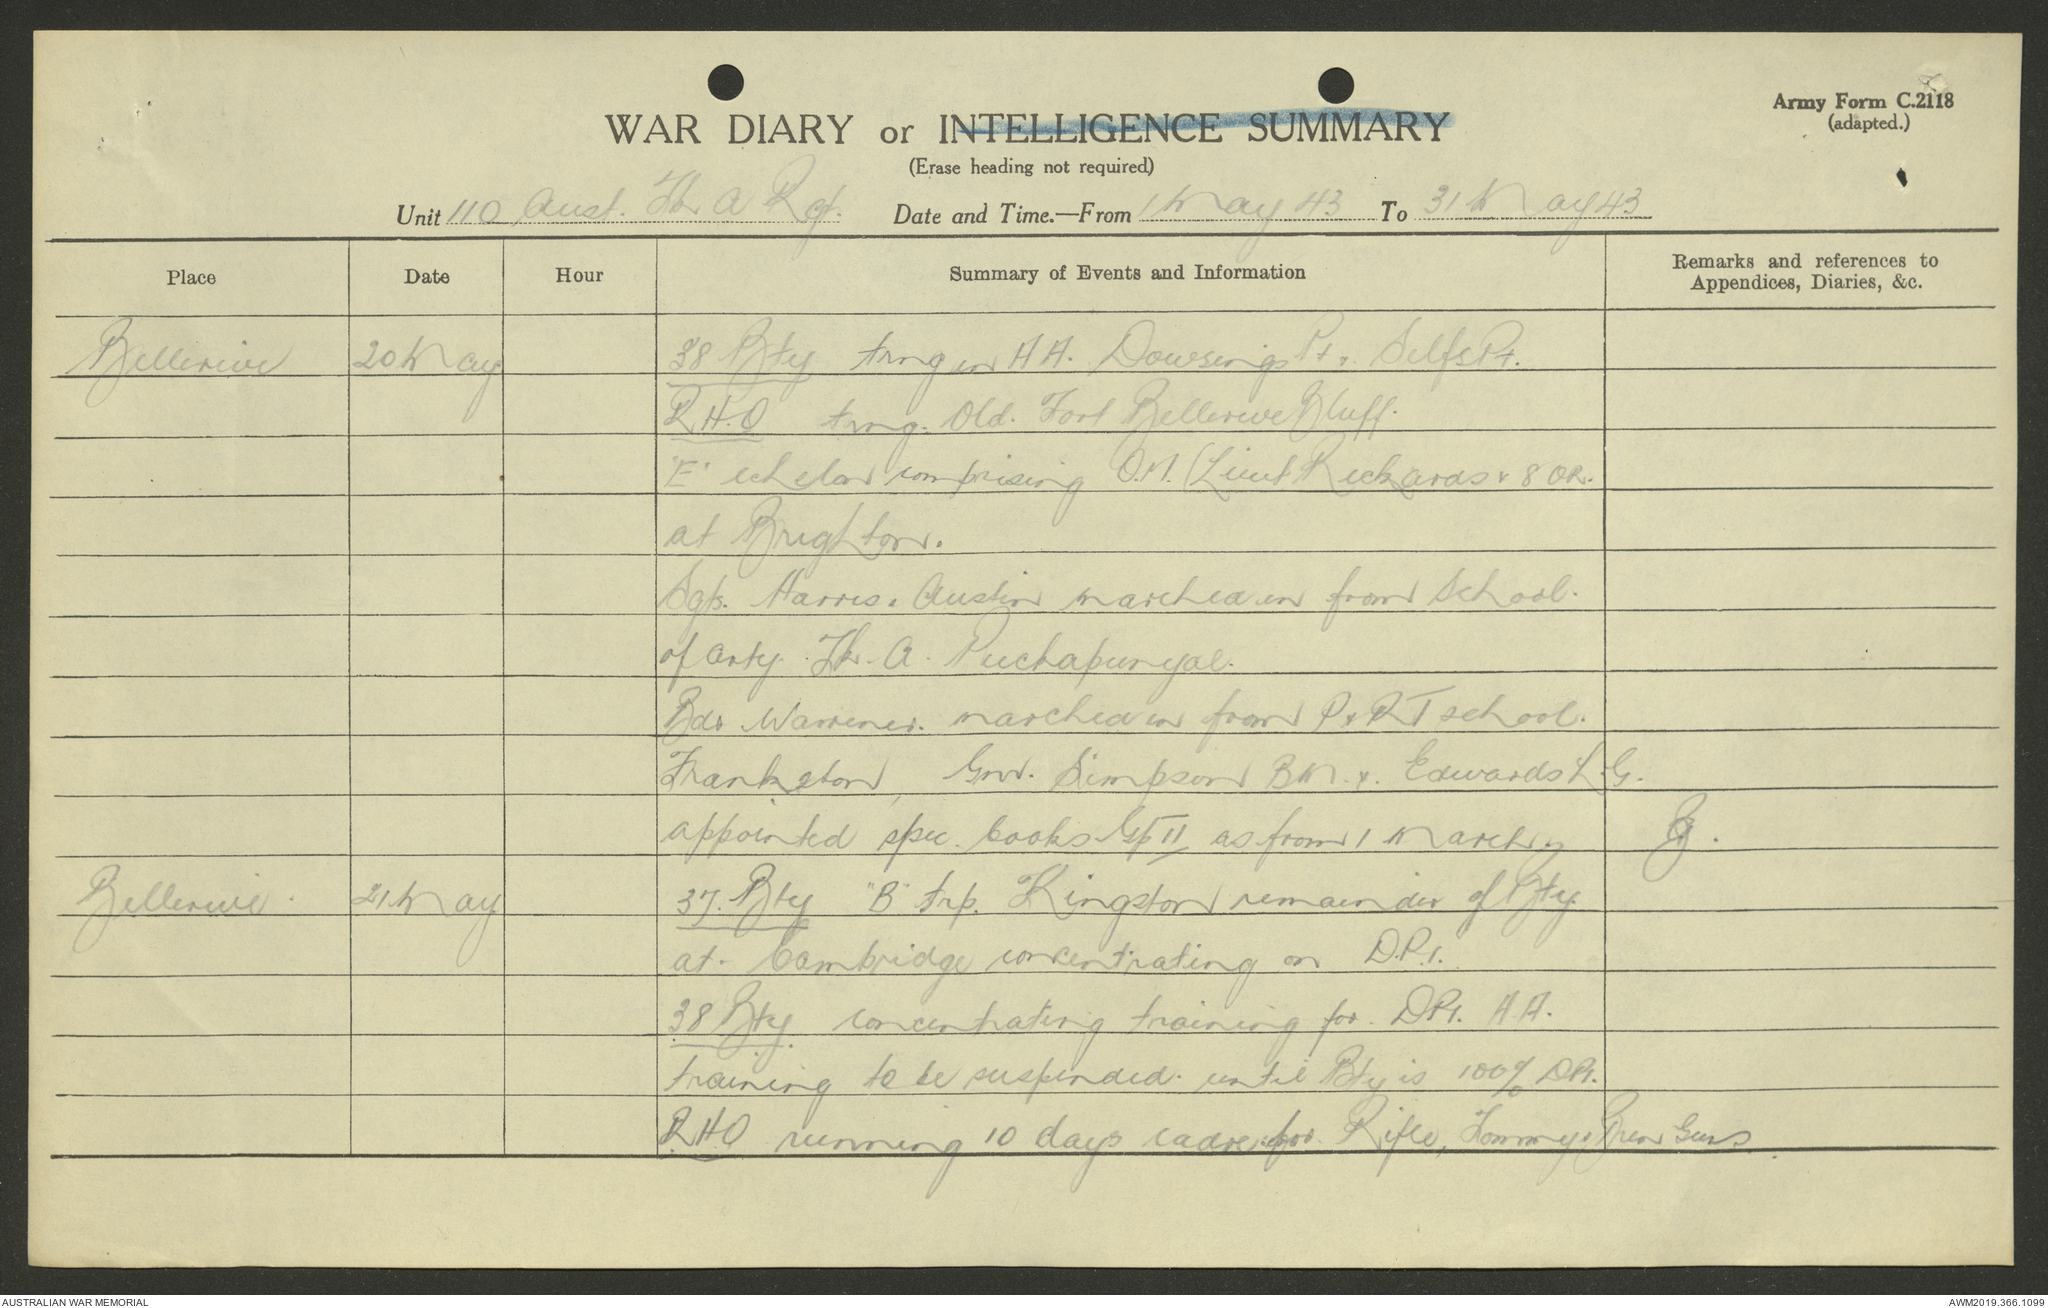 Army Form C.2118
(adapted.)
WAR DIARY or INTELLIGENCE SUMMARY
(Erase heading not required)
Unit 110 Aust. Lt. A A Rgt. Date and Time.—From 1 May 43 To 31 May 43
Place Date Hour Summary of Events and Information Remarks and references to Appendices, Diaries, &c.
Bellerive 20 May 38 Bty trng in A A. Dowsings Pt. & Selfs Pt.
R.H.Q trng. Old. Fort Bellerive Bluff.
"E" echelon comprising Q.M. (Lieut Rickards & 8 OR.
at Brighton.
Sgts. Harris & Austin marched in from School.
of Arty. A. Puckapunyal.
Bdr Warrener. marched in from P & R T school.
Frankston, Gnr. Simpson B M. & Edwards L.G.
appointed spec. Cooks Gp II as from 1 March
Bellerive. 21 May 37. Bty "B" trp. Kingston remainder of Bty.
at Cambridge concentrating on D.P.1.
38 Bty concentrating training for DP1. A A.
training to be suspended until Bty is 100% DP1.
R.H.Q running 10 days cadre for Rifle, Tommy & Bren Guns
AUSTRALIAN WAR MEMORIAL AWM2019.366.1099